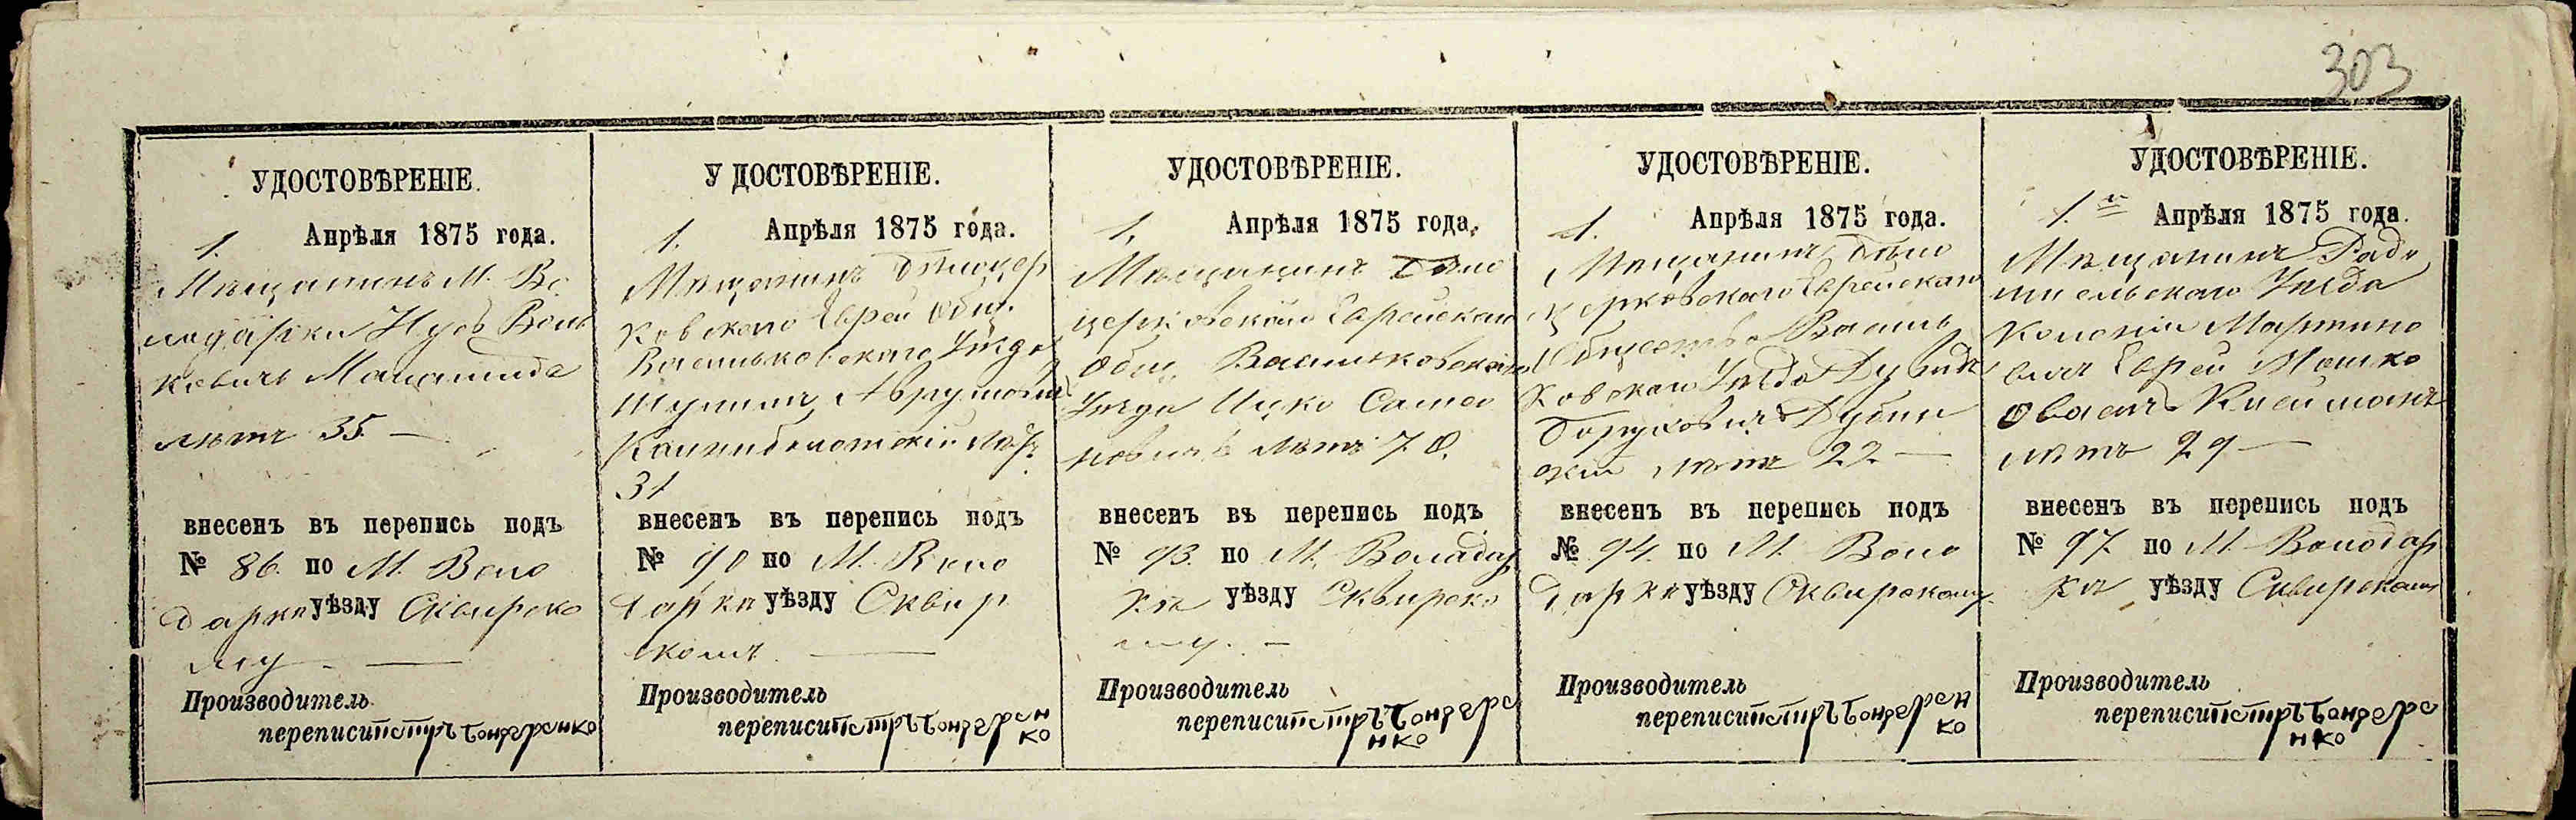 303
УДОСТОВѢРЕНІЕ.
1. Апрѣля 1875 года.
Мѣщанинъ М. Во
лодарки Нусъ Воль
ковичъ
лѣтъ 35 —
внесенъ въ перепись подъ
№ 86. по М. Воло
дарки уѣзду Сквирско
му. —
Производитель
переписи Петръ Бондаренко
У ДОСТОВѢРЕНІЕ.
1. Апрѣля 1875 года.
Мѣщанинъ Бѣлоцер
ковского Еврей Общ.
Васильковского Уѣзда
31
внесенъ въ перепись подъ
№ 90 по М. Воло
дарки уѣзду Сквир
скомъ. —
Производитель
переписи Петръ Бондарен
ко
УДОСТОВѢРЕНІЕ.
1. Апрѣля 1875 года.
Мѣщанинъ Бѣло
церковского Еврейскаго
Общ. Васильковского
Уѣзда Ицко
лѣтъ 70.
внесенъ въ перепись подъ
№ 93. по М. Воладар
кѣ уѣзду Сквирско
му. —
Производитель
переписи Петръ Бондаре
нко
УДОСТОВѢРЕНІЕ.
1. Апрѣля 1875 года.
Мѣщанинъ Бѣло
церковскаго Еврейскаго
Общества Василь
ковскаго Уѣзда
Боруховичъ Дубин
скій лѣтъ 22 —
внесенъ въ перепись подъ
№ 94. по М. Воло
даркѣ уѣзду Сквирскому.
Производитель
переписи Петръ Бондарен
ко
УДОСТОВѢРЕНІЕ.
1.го Апрѣля 1875 года.
Мѣщанинъ Радо
мысльскаго Уѣзда
Колоніи Мартино
вичъ Еврей Мошко
Клейманъ
лѣтъ 29 —
внесенъ въ перепись подъ
№ 97. по М. Володар
кѣ, уѣзду Сквирскому
Производитель
переписи Петръ Бондаре
нко